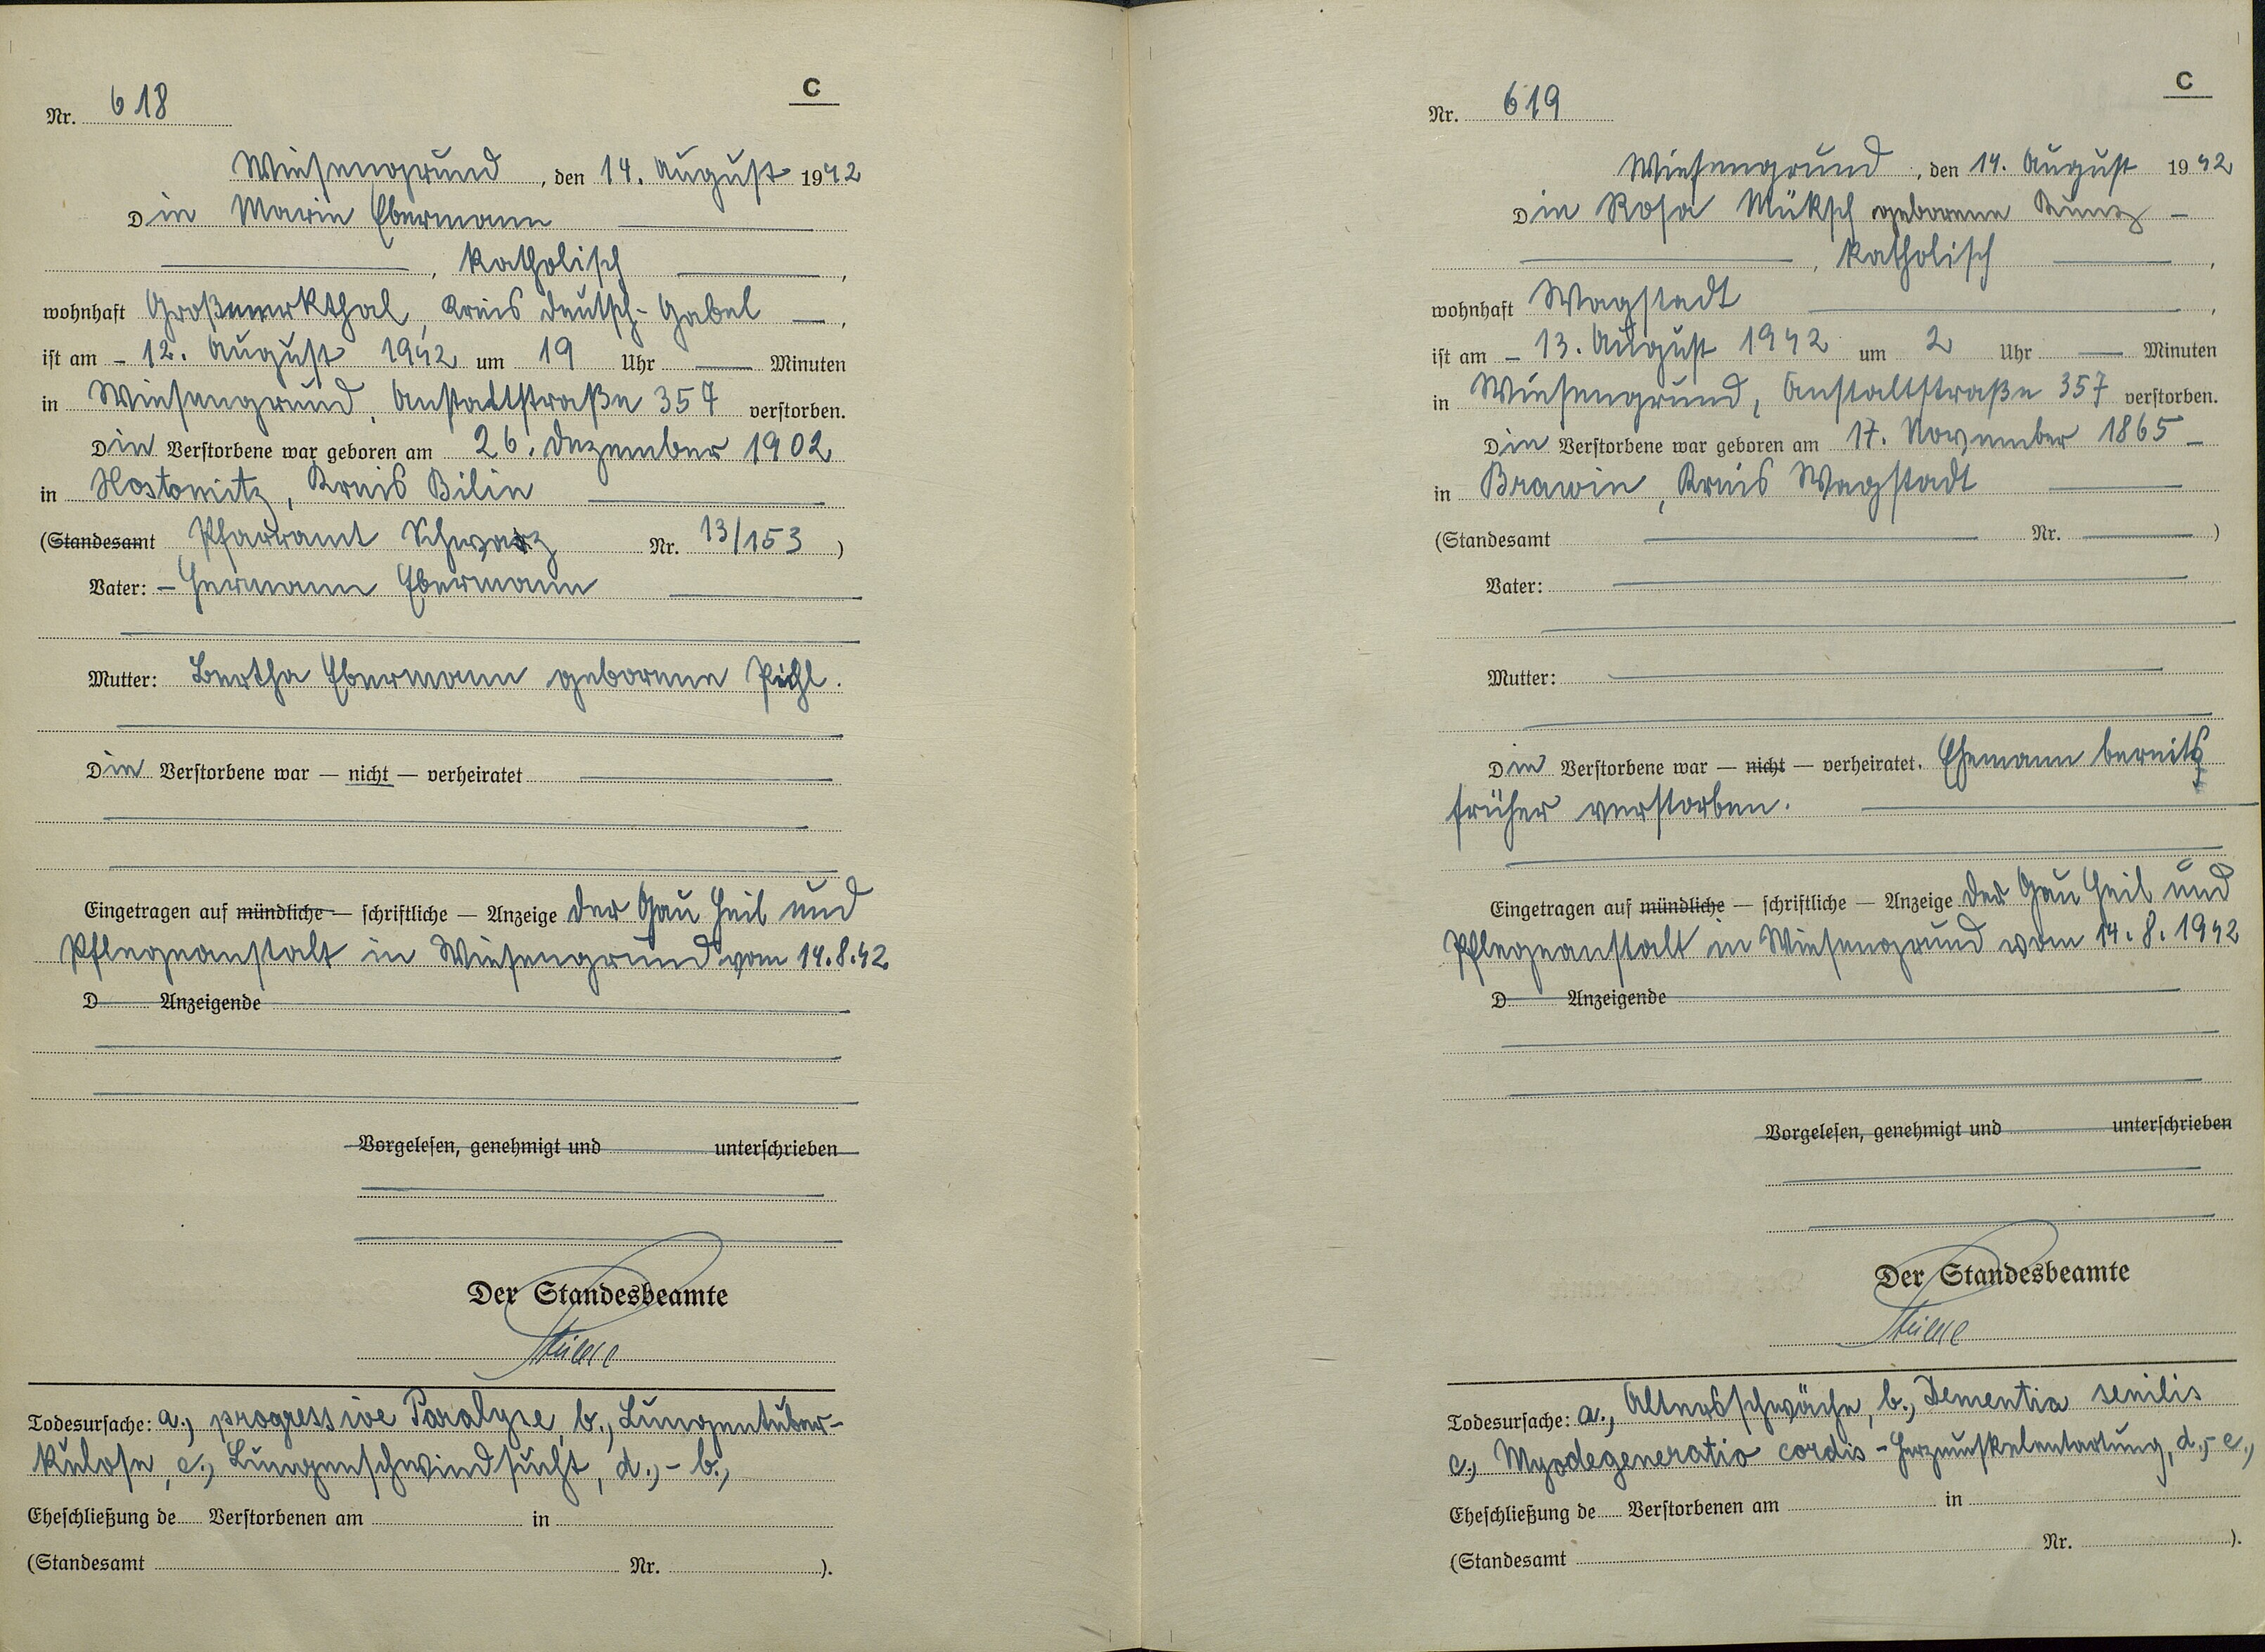 C
Nr. 618
Wiesengrund, den 14. August 1942
Die Marie Ebermann
, katholisch ,
wohnhaft Großmerkthal, Kreis Deutsch-Gabel ,
ist am 12. August 1942 um 19 Uhr Minuten
in Wiesengrund, Anstaltstraße 357 verstorben.
Die Verstorbene war geboren am 26. Dezember 1902
in Hostomitz, Kreis Bilin
(Standesamt Pfarramt Schwaz Nr. 13/153 )
Vater: - Hermann Ebermann
Mutter: Bertha Ebermann geborene Pichl.
Die Verstorbene war — nicht — verheiratet
Eingetragen auf mündliche — schriftliche — Anzeige der Gau Heil und
Pflegeanstalt in Wiesengrund vom 14.8.42
D Anzeigende
Vorgelesen, genehmigt und unterschrieben
Der Standesbeamte
Todesursache: a., progressive Paralyse, b., Lungentuber-
kulose, c., Lungenschwindsucht, d., - b.,
Eheschließung de Verstorbenen am in
(Standesamt Nr. ).
C
Nr. 619
Wiesengrund, den 14. August 1942
Die Rosa Müksch geborene Kunz -
, katholisch ,
wohnhaft Wagstadt ,
ist am - 13. August 1942 um 2 Uhr Minuten
in Wiesengrund, Anstaltstraße 357 verstorben.
Die Verstorbene war geboren am 17. November 1865 -
in Brawin, Kreis Wagstadt
(Standesamt Nr. )
Vater:
Mutter:
Die Verstorbene war — nicht — verheiratet. Ehemann bereits
früher verstorben.
Eingetragen auf mündliche — schriftliche — Anzeige der Gau Heil und
Pflegeanstalt in Wiesengrund vom 14.8.1942
D Anzeigende
Vorgelesen, genehmigt und unterschrieben
Der Standesbeamte
Todesursache: a., Altersschwäche, b., Dementia senilis
c., Myodegeneratio cordis - Herzmuskelentartung, d., - c.,
Eheschließung de Verstorbenen am in
(Standesamt Nr. ).